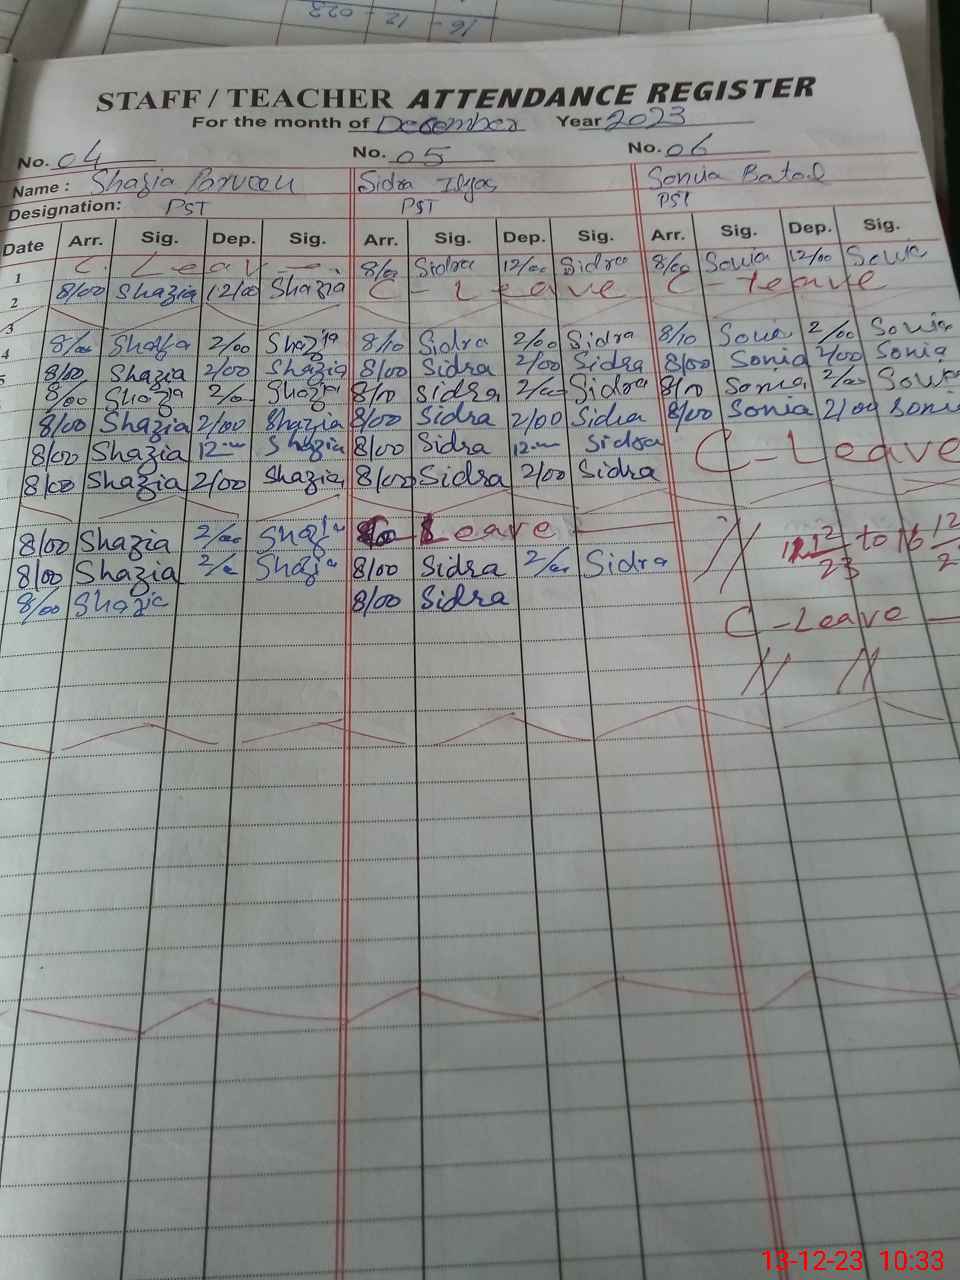 16-12-023
STAFF / TEACHER ATTENDANCE REGISTER
For the month of December Year 2023
No. 04 No. 05 No. 06
Name : Shazia Parveen Sidra Ilyas Sonia Batool
Designation: PST PST PST
Date Arr. Sig. Dep. Sig. Arr. Sig. Dep. Sig. Arr. Sig. Dep. Sig.
1 C. Leave 8/00 Sidra 12/00 Sidra 8/00 Sonia 12/00 Sonia
2 8/00 Shazia 12/00 Shazia C - Leave C - Leave
3
4 8/00 Shazia 2/00 Shazia 8/10 Sidra 2/00 Sidra 8/10 Sonia 2/00 Sonia
5 8/00 Shazia 2/00 Shazia 8/00 Sidra 2/00 Sidra 8/00 Sonia 2/00 Sonia
8/00 Shazia 2/00 Shazia 8/00 Sidra 2/00 Sidra 8/00 Sonia 2/00 Sonia
8/00 Shazia 2/00 Shazia 8/00 Sidra 2/00 Sidra 8/00 Sonia 2/00 Sonia
8/00 Shazia 12 Shazia 8/00 Sidra 12 Sidra C - Leave
8/00 Shazia 2/00 Shazia 8/00 Sidra 2/00 Sidra
8/00 Shazia 2/00 Shazia Leave // 12/23 to 16 12/2
8/00 Shazia 2/00 Shazia 8/00 Sidra 2/00 Sidra
8/00 Shazia 8/00 Sidra C - Leave
// //
13-12-23 10:33